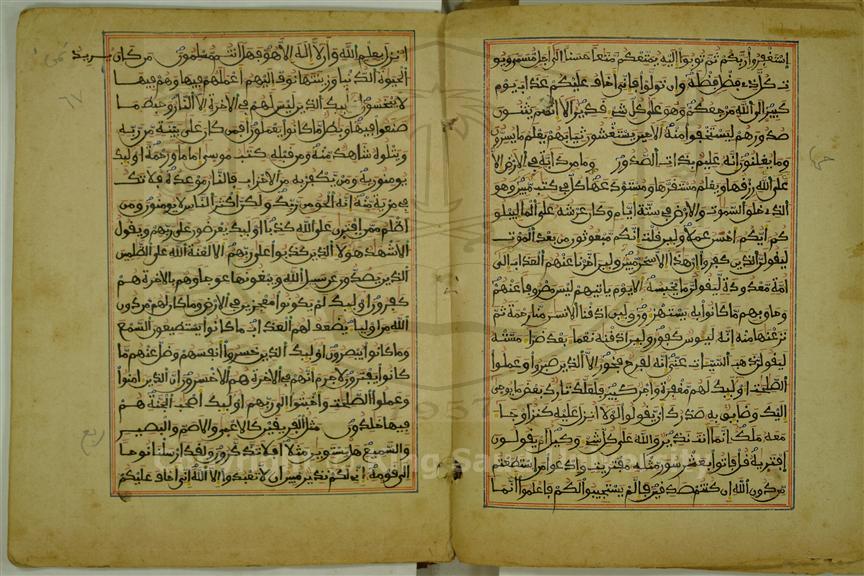 استغفروا ربكم ثم توبوا إليه يمتعكم متعا حسنا إلى أجل مسمى ويو
ت كل ذي فضل فضله وإن تولوا فإني أخاف عليكم عذاب يوم
كبير إلى الله مرجعكم وهو على كل شي قدير ألا إنهم يثنون
صدورهم ليستخفوا منه ألا حين يستغشون ثيابهم يعلم ما يسرون
وما يعلنون إنه عليم بذات الصدور وما من دابة في الأرض إلا
على الله رزقها ويعلم مستقرها ومستودعها كل في كتب مبين وهو
الذي خلق السموت والأرض في ستة أيام وكان عرشه على الما ليبلو
كم أيكم أحسن عملا ولين قلت إنكم مبعوثون من بعد الموت
ليقولن الذين كفروا إن هذا إلا سحر مبين ولين أخرنا عنهم العذاب إلى
أمة معدودة ليقولن ما يحبسه ألا يوم ياتيهم ليس مصروفا عنهم
وحاق بهم ما كانوا به يستهزون ولين أذقنا الانسن منا رحمة ثم
نزعنها منه إنه ليوس كفور ولين أذقنه نعما بعد ضرا مسته
ليقولن ذهب السيات عني إنه لفرح فخور إلا الذين صبروا وعملوا
الصلحت أوليك لهم مغفرة وأجر كبير فلعلك تارك بعض ما يوحى
إليك وضايق به صدرك أن يقولوا لولا أنزل عليه كنز أو جا
معه ملك إنما أنت نذير والله على كل شي وكيل أم يقولون
افتريه قل فاتوا بعشر سور مثله مفتريت وادعوا من استطعتم
من دون الله إن كنتم صدقين فإلم يستجيبوا لكم فاعلموا أنما
أنزل بعلم الله وأن لا إله إلا هو فهل أنتم مسلمون من كان يريد
الحيوة الدنيا وزينتها نوف إليهم أعملهم فيها وهم فيها
لا يبخسون أوليك الذين ليس لهم في الاخرة إلا النار وحبط ما
صنعوا فيها وبطل ما كانوا يعملون أفمن كان على بينة من ربه
ويتلوه شاهد منه ومن قبله كتب موسى إماما ورحمة أوليك
يومنون به ومن يكفر به من الاحزاب فالنار موعده فلا تك
في مرية منه إنه الحق من ربك ولكن أكثر الناس لا يومنون ومن
أظلم ممن افترى على الله كذبا أوليك يعرضون على ربهم ويقول
الأشهد هولا الذين كذبوا على ربهم ألا لعنة الله على الظلمين
الذين يصدون عن سبيل الله ويبغونها عوجا وهم بالاخرة هم
كفرون أوليك لم يكونوا معجزين في الأرض وما كان لهم من دون
الله من أوليا يضعف لهم العذاب ما كانوا يستطيعون السمع
وما كانوا يبصرون أوليك الذين خسروا أنفسهم وضل عنهم ما
كانوا يفترون لا جرم أنهم في الاخرة هم الأخسرون إن الذين امنوا
وعملوا الصلحت وأخبتوا إلى ربهم أوليك أصحب الجنة هم
فيها خلدون مثل الفريقين كالاعمى والاصم والبصير
والسميع هل يستوين مثلا أفلا تذكرون ولقد أرسلنا نوحا
إلى قومه إني لكم نذير مبين أن لا تعبدوا إلا الله إني أخاف عليكم
ثمن
٦٧
ربع
1957
King Saud University